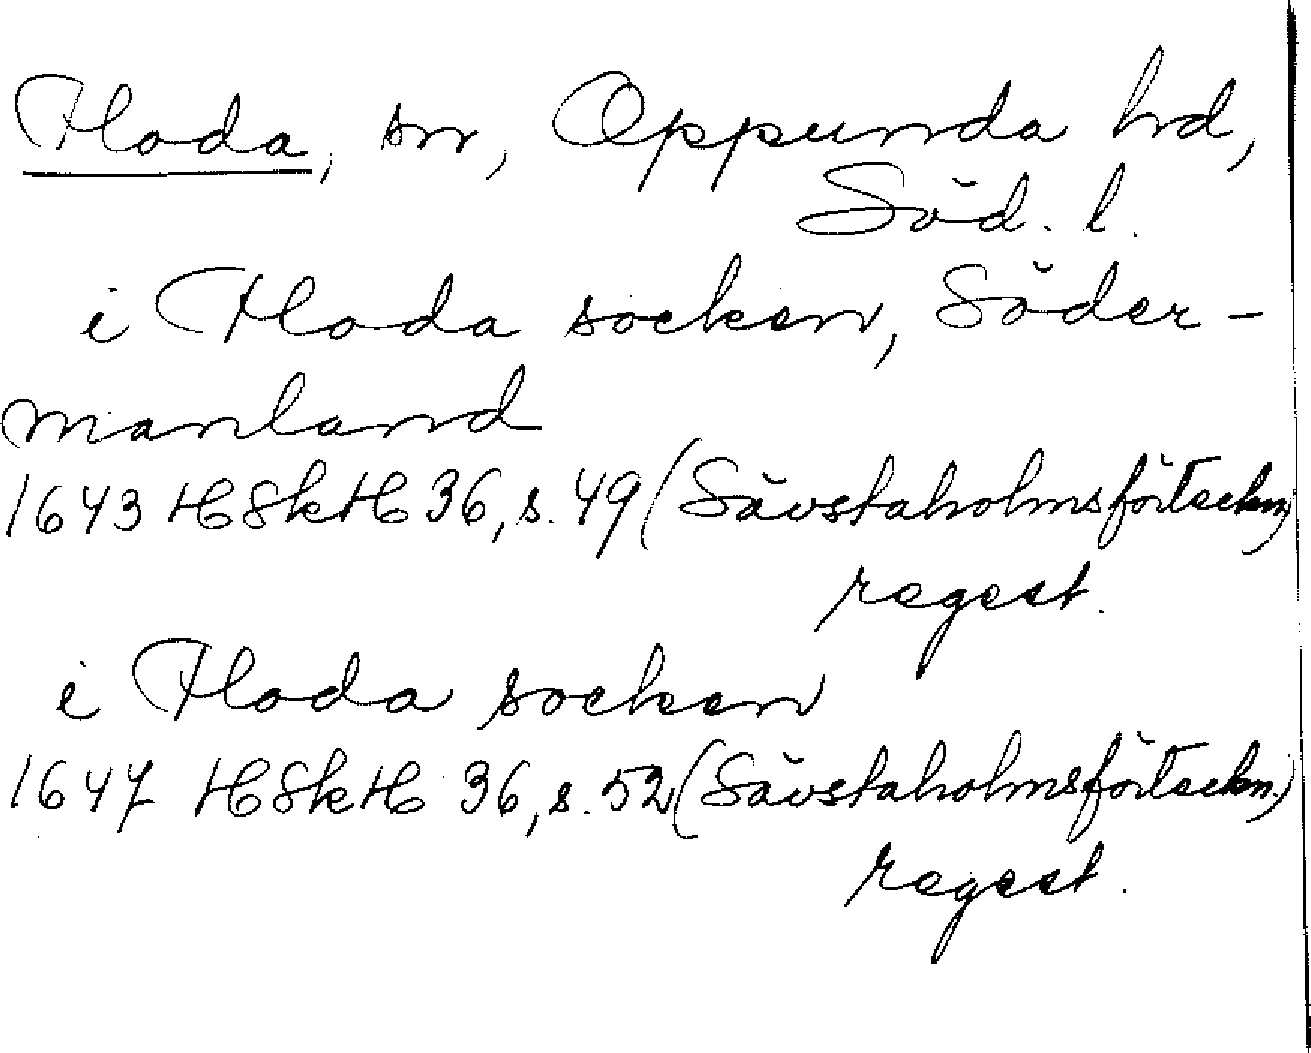 Floda, sn, Oppunda hd,
Söd. l.
i Floda socken, Söder-
manland
1643 HSkH 36, s. 49 (Sävstaholmsförteckn)
regest.
i Floda socken
1647 HSkH 36, s. 52 (Sävstaholmsförteckn.)
regest.